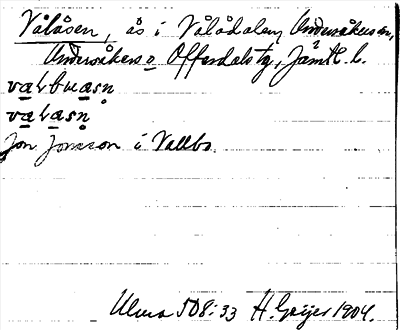 Vålåsen, ås i Vålådalen, Undersåkers sn,
Undersåkers o Offerdals tg, Jämtl. l.
valbuasn
valasn
Jon Jonsson i Vallbo
Ulma 508:33 H. Geijer 1904.